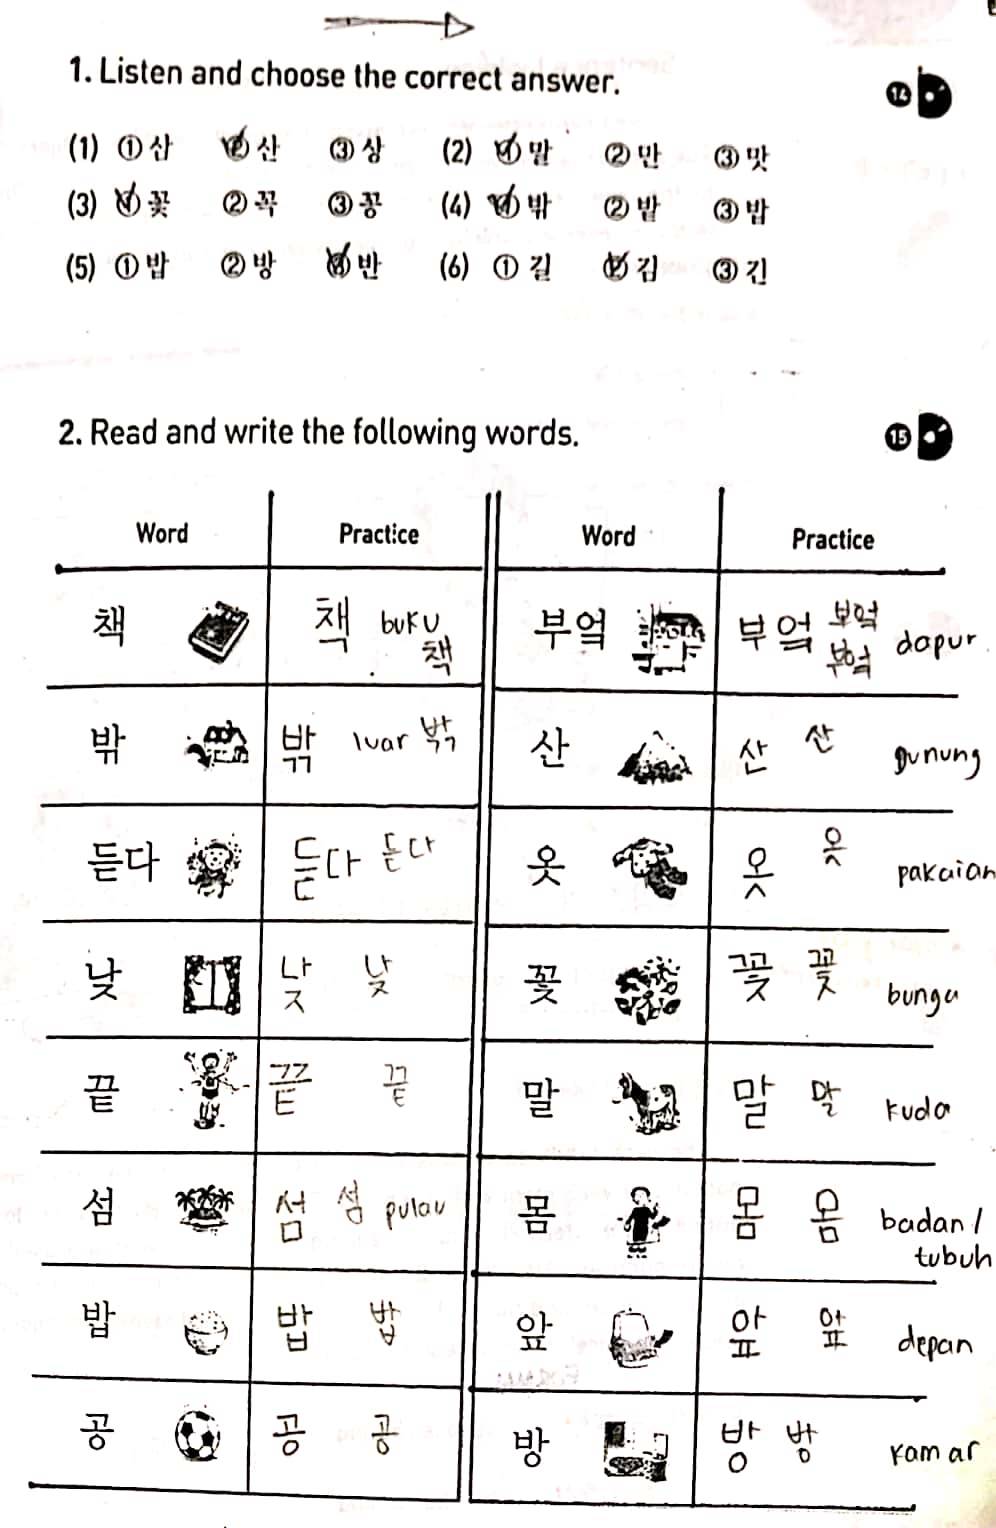 1. Listen and choose the correct answer. 14
(1) ① 삼 ② 산 ③ 상 (2) ① 말 ② 만 ③ 맛
(3) ① 꽃 ② 꼭 ③ 꽁 (4) ① 밖 ② 발 ③ 밥
(5) ① 밥 ② 방 ③ 반 (6) ① 길 ② 김 ③ 긴
2. Read and write the following words. 15
Word Practice Word Practice
책 책 buku 책 부엌 부엌 부엌 부엌 dapur
밖 밖 luar 밖 산 산 산 gunung
듣다 듣다 듣다 옷 옷 옷 pakaian
낮 낮 낮 꽃 꽃 꽃 bunga
끝 끝 끝 말 말 말 kuda
섬 섬 섬 pulau 몸 몸 몸 badan / tubuh
밥 밥 밥 앞 앞 앞 depan
공 공 공 방 방 방 kamar